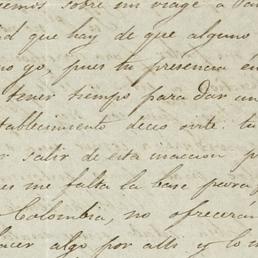 emos sobre mi viage a Pa
d que hay de que alguno
o yo, pues tu presencia en
tener tiempo para dar un
tablecimiento deceo oirte: tu
salir de esta inaccion p
es me falta la base para
Colombia, no ofrecerán
acer algo por alli y lo m